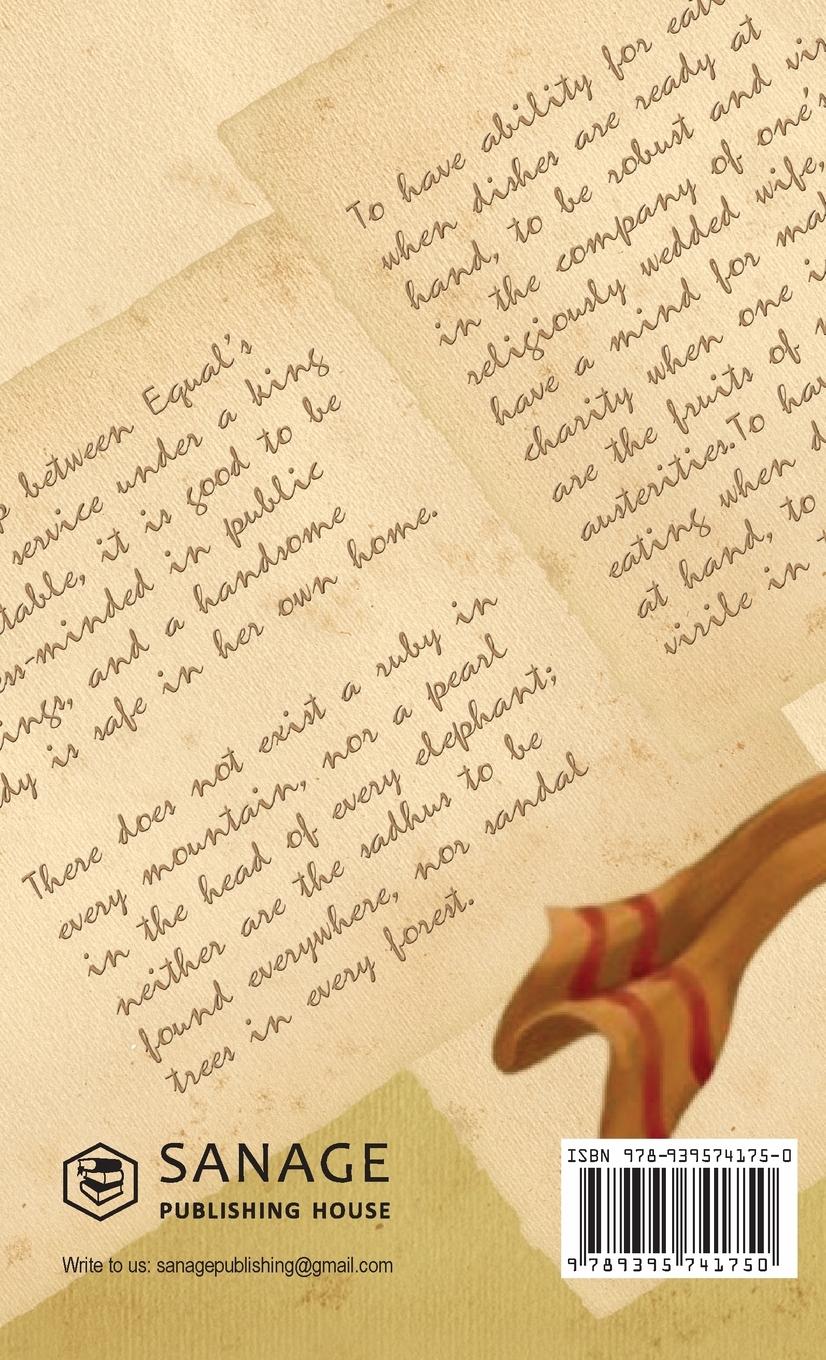 To have ability for
when dishes are ready at
hand, to be robust and
in the company of one's
religiously wedded wife,
have a mind for
charity when one
are the fruits of
austerities.To
eating when
at hand, to
virile in
between Equal's
service under a king
it is good to be
in public
and a handsome
is safe in her own home.
There does not exist a ruby in
every mountain, nor a pearl
in the head of every elephant;
neither are the sadhus to be
found everywhere, nor sandal
trees in every forest.
SANAGE
PUBLISHING HOUSE
Write to us: sanagepublishing@gmail.com
ISBN 978-939574175-0
9 789395 741750